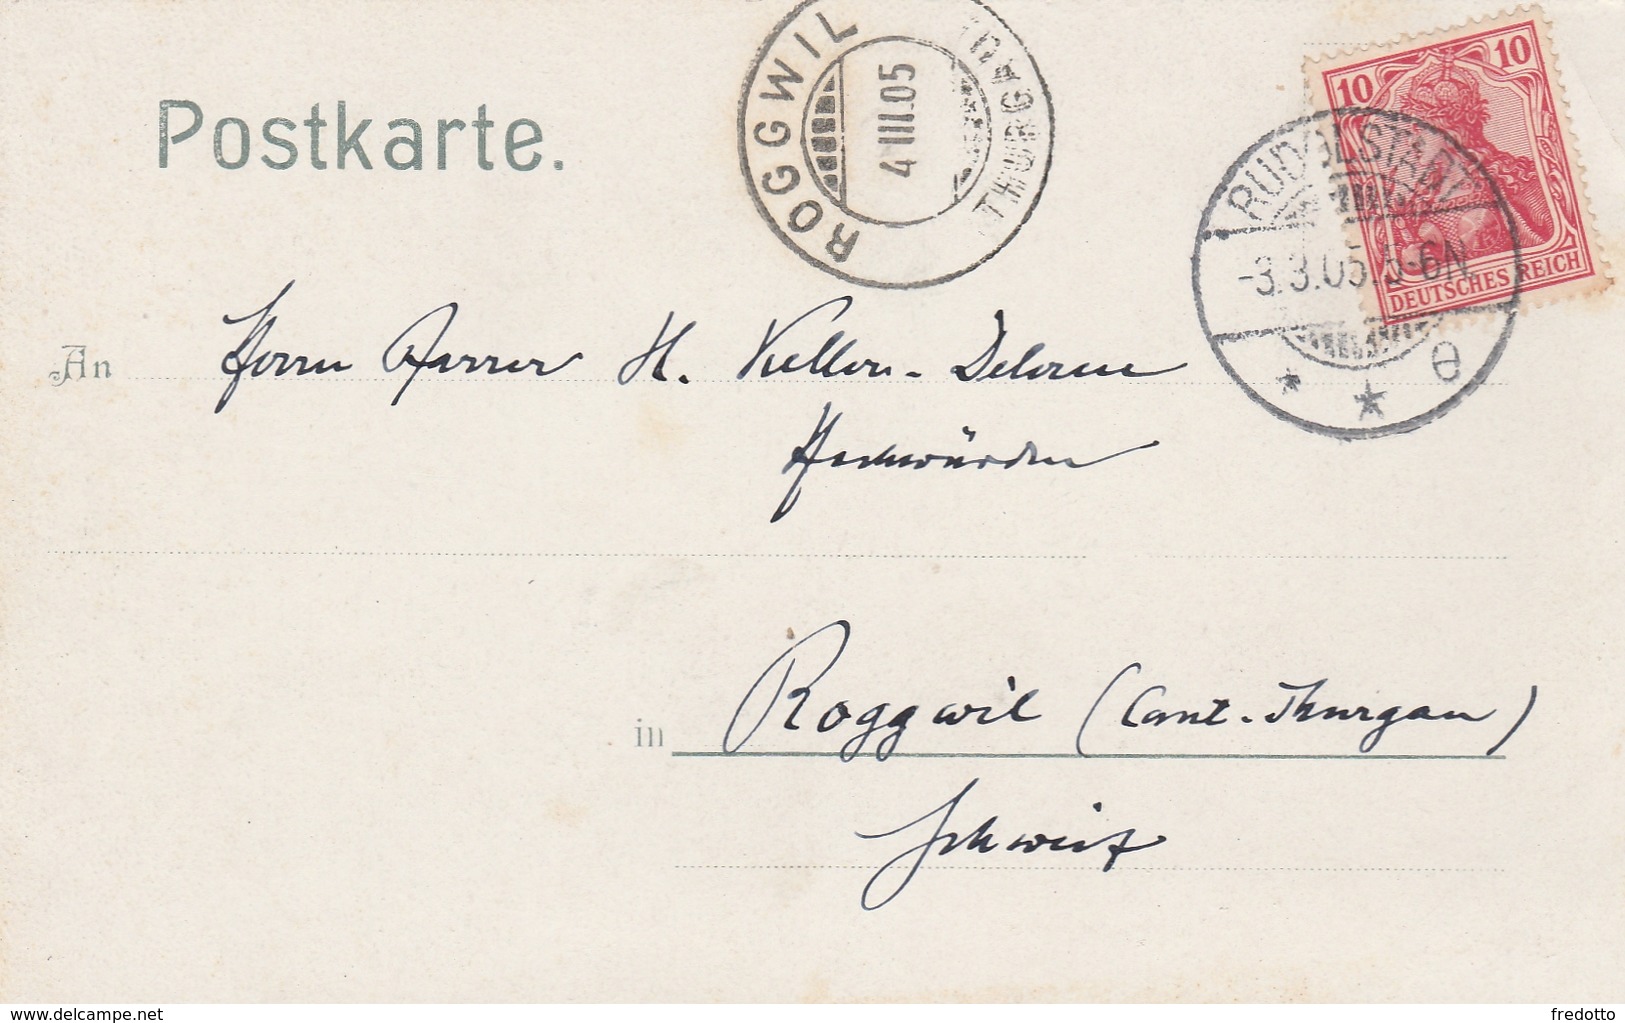 Postkarte.
ROGGWIL
(THURGAU)
4 III.05
10 10
DEUTSCHES REICH
RUDOLSTADT
-3.3.05.5-6N.
* * e
An Herrn Pfarrer H. Keller-Delorme
Hochwürden
in Roggwil (Cant. Thurgau)
Schweiz
www.delcampe.net
fredotto